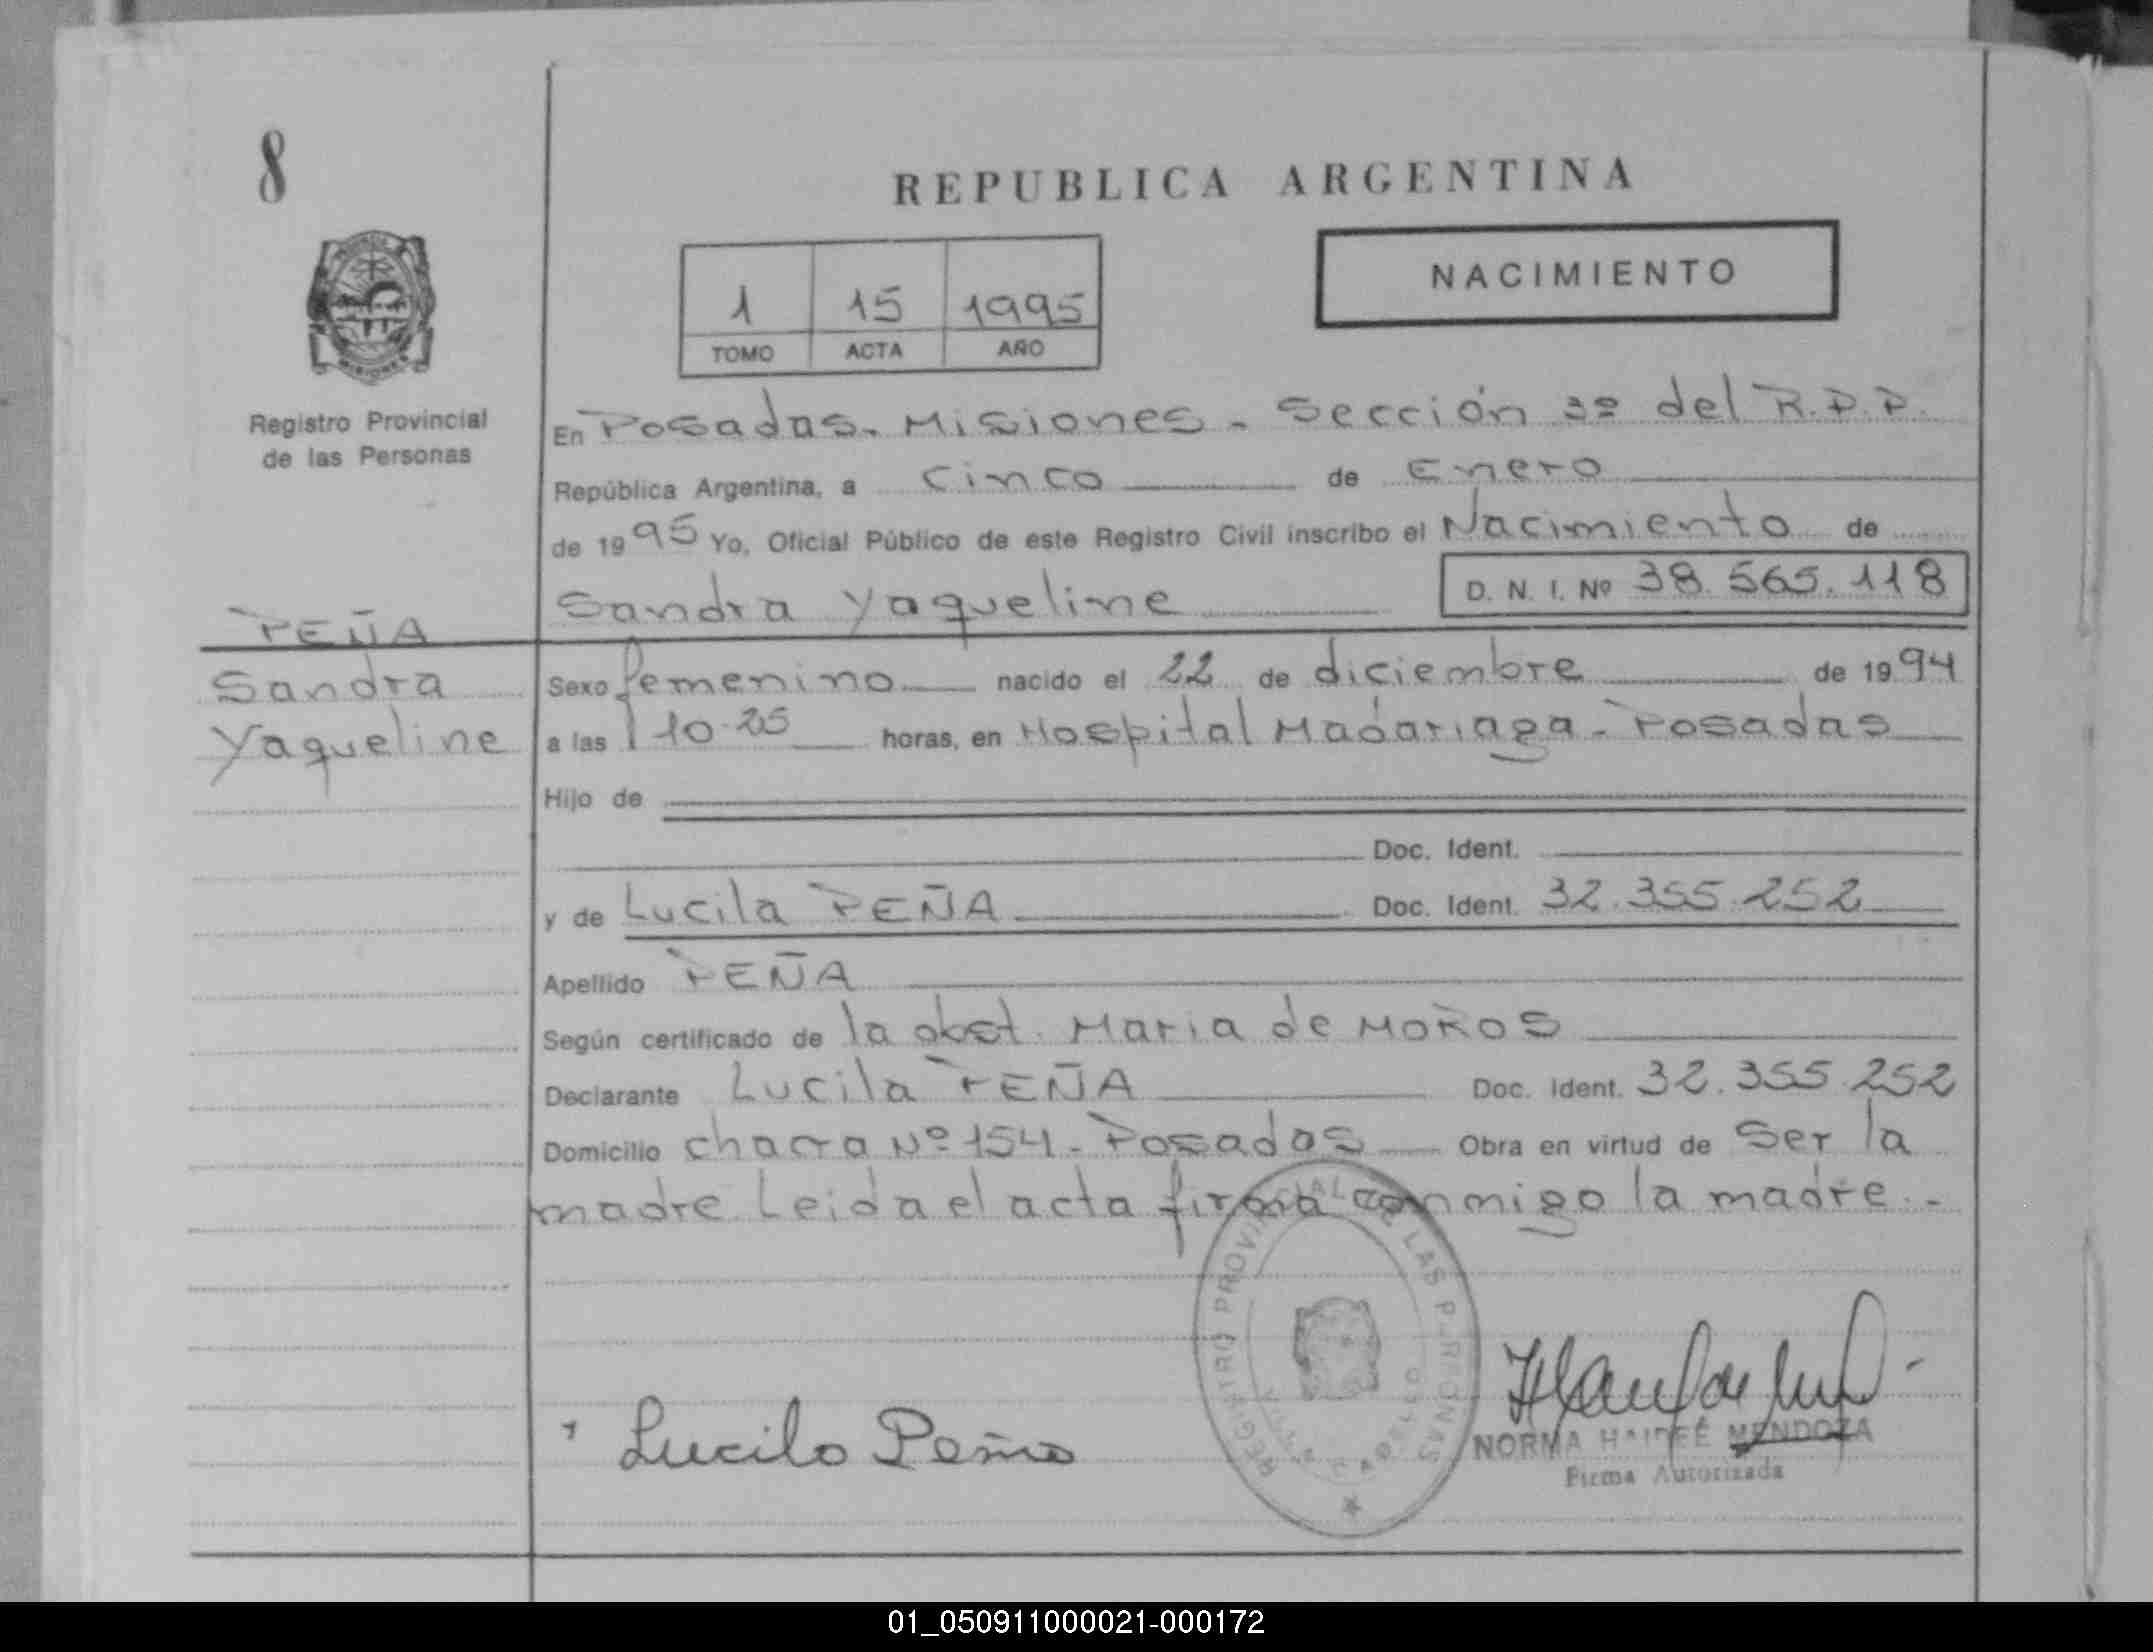 8
REPUBLICA ARGENTINA
NACIMIENTO
1 15 1995
TOMO ACTA AÑO
MISIONES
Registro Provincial
de las Personas
En Posadas. Misiones - Sección 3º del R.P.P.
República Argentina, a cinco de Enero
de 1995 Yo, Oficial Público de este Registro Civil inscribo el Nacimiento de
Sandra Yaqueline D. N. I. Nº 38.565.118
PEÑA
Sandra
Yaqueline
Sexo femenino nacido el 22 de diciembre de 1994
a las 10.25 horas, en Hospital Madariaga - Posadas
Hijo de
Doc. Ident.
y de Lucila PEÑA Doc. Ident. 32.355.252
Apellido PEÑA
Según certificado de la obst. Maria de MOROS
Declarante Lucila PEÑA Doc. Ident. 32.355.252
Domicilio chacra Nº 154 - Posadas Obra en virtud de ser la
madre Leida el acta firma conmigo la madre. -
REGISTRO PROVINCIAL DE LAS PERSONAS
Lucila Peña
NORMA HAIDEÉ MENDOZA
Firma Autorizada
01_050911000021-000172